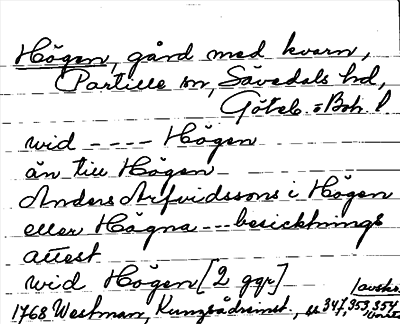 Högen, gård med kvarn,
Partille sn, Sävedals hd,
Göteb. o Boh. l
wid ---- Högen
än till Högen
Anders Arfvidssons i Högen
eller Högna --- besicktnings
attest
wid Högen [2 ggr]
1768 Westman, Kungsådreinst., ss 347, 353, 354